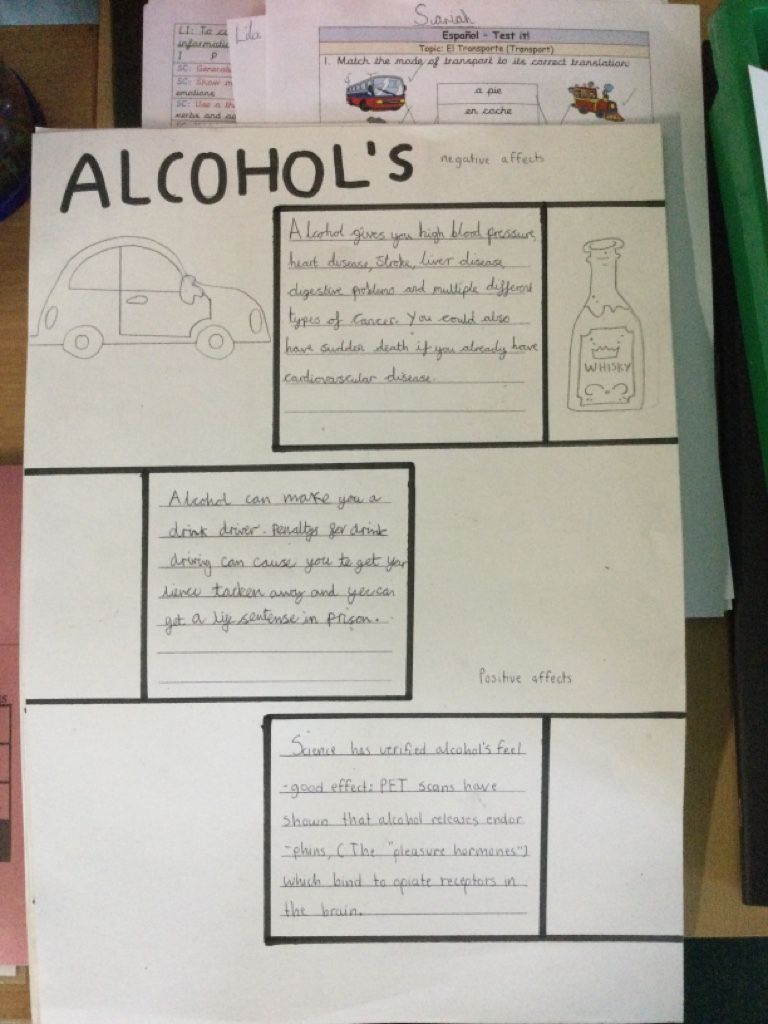 Sianiah
LI: To c
informati
Lila
SC: Generat
SC: Show m
emotions
SC: Use a th
verbs and ad
Español - Test it!
Topic: El Transporte (Transport)
1. Match the mode of transport to its correct translation:
a pie
en coche
ALCOHOL'S
negative affects
Alcohol gives you high blood pressure,
heart disease, stroke, liver disease,
digestive problems and multiple different
types of cancer. You could also
have sudden death if you already have
cardiovascular disease.
WHISKY
Alcohol can make you a
drink driver. Penaltys for drink
driving can cause you to get your
lience tacken away and you can
get a life sentense in prison.
Positive affects
Science has verified alcohol's feel
-good effect: PET scans have
shown that alcohol releases endor
-phins, (The "pleasure hormones")
which bind to opiate receptors in
the brain.